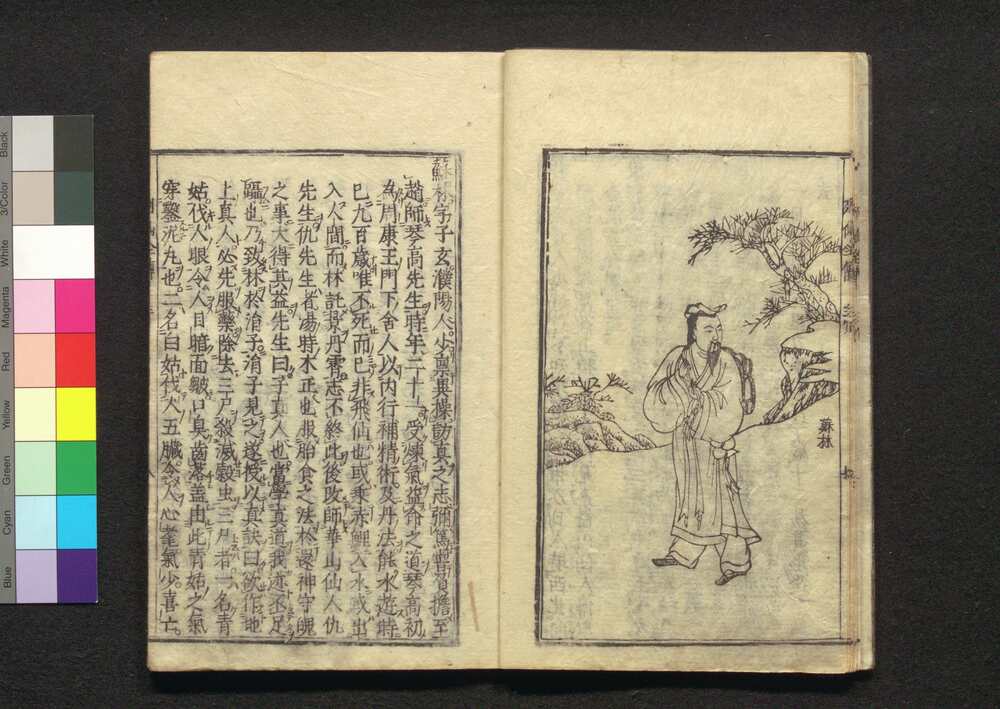 蘇林
蘇林字子玄濮陽人少稟異操訪真之志彌篤嘗負擔至
趙師琴高先生時年二十一受煉氣益命之道琴高初
為周康王門下舍人以内行補精術及丹法能水遊時
已九百歳唯不死而已非飛仙也或乗赤鯉入水或出
入人間而林託景丹霄志不終此後改師華山仙人仇
先生仇先生者湯時木正也服胎食之法於還神守魄
之事大得其益先生曰子真人也當學真道我迹不足
躡也乃致林於涓子涓子見之遂授以真訣曰欲作地
上真人必先服藥除去三尸殺滅穀虫三尸者一名青
姑伐人眼令人目暗面皺口臭齒落蓋由此青姑之氣
穿鑿泥丸也二名白姑伐人五臓令人心耄氣少喜亡
Black
3/Color
White
Magenta
Red
Yellow
Green
Cyan
Blue